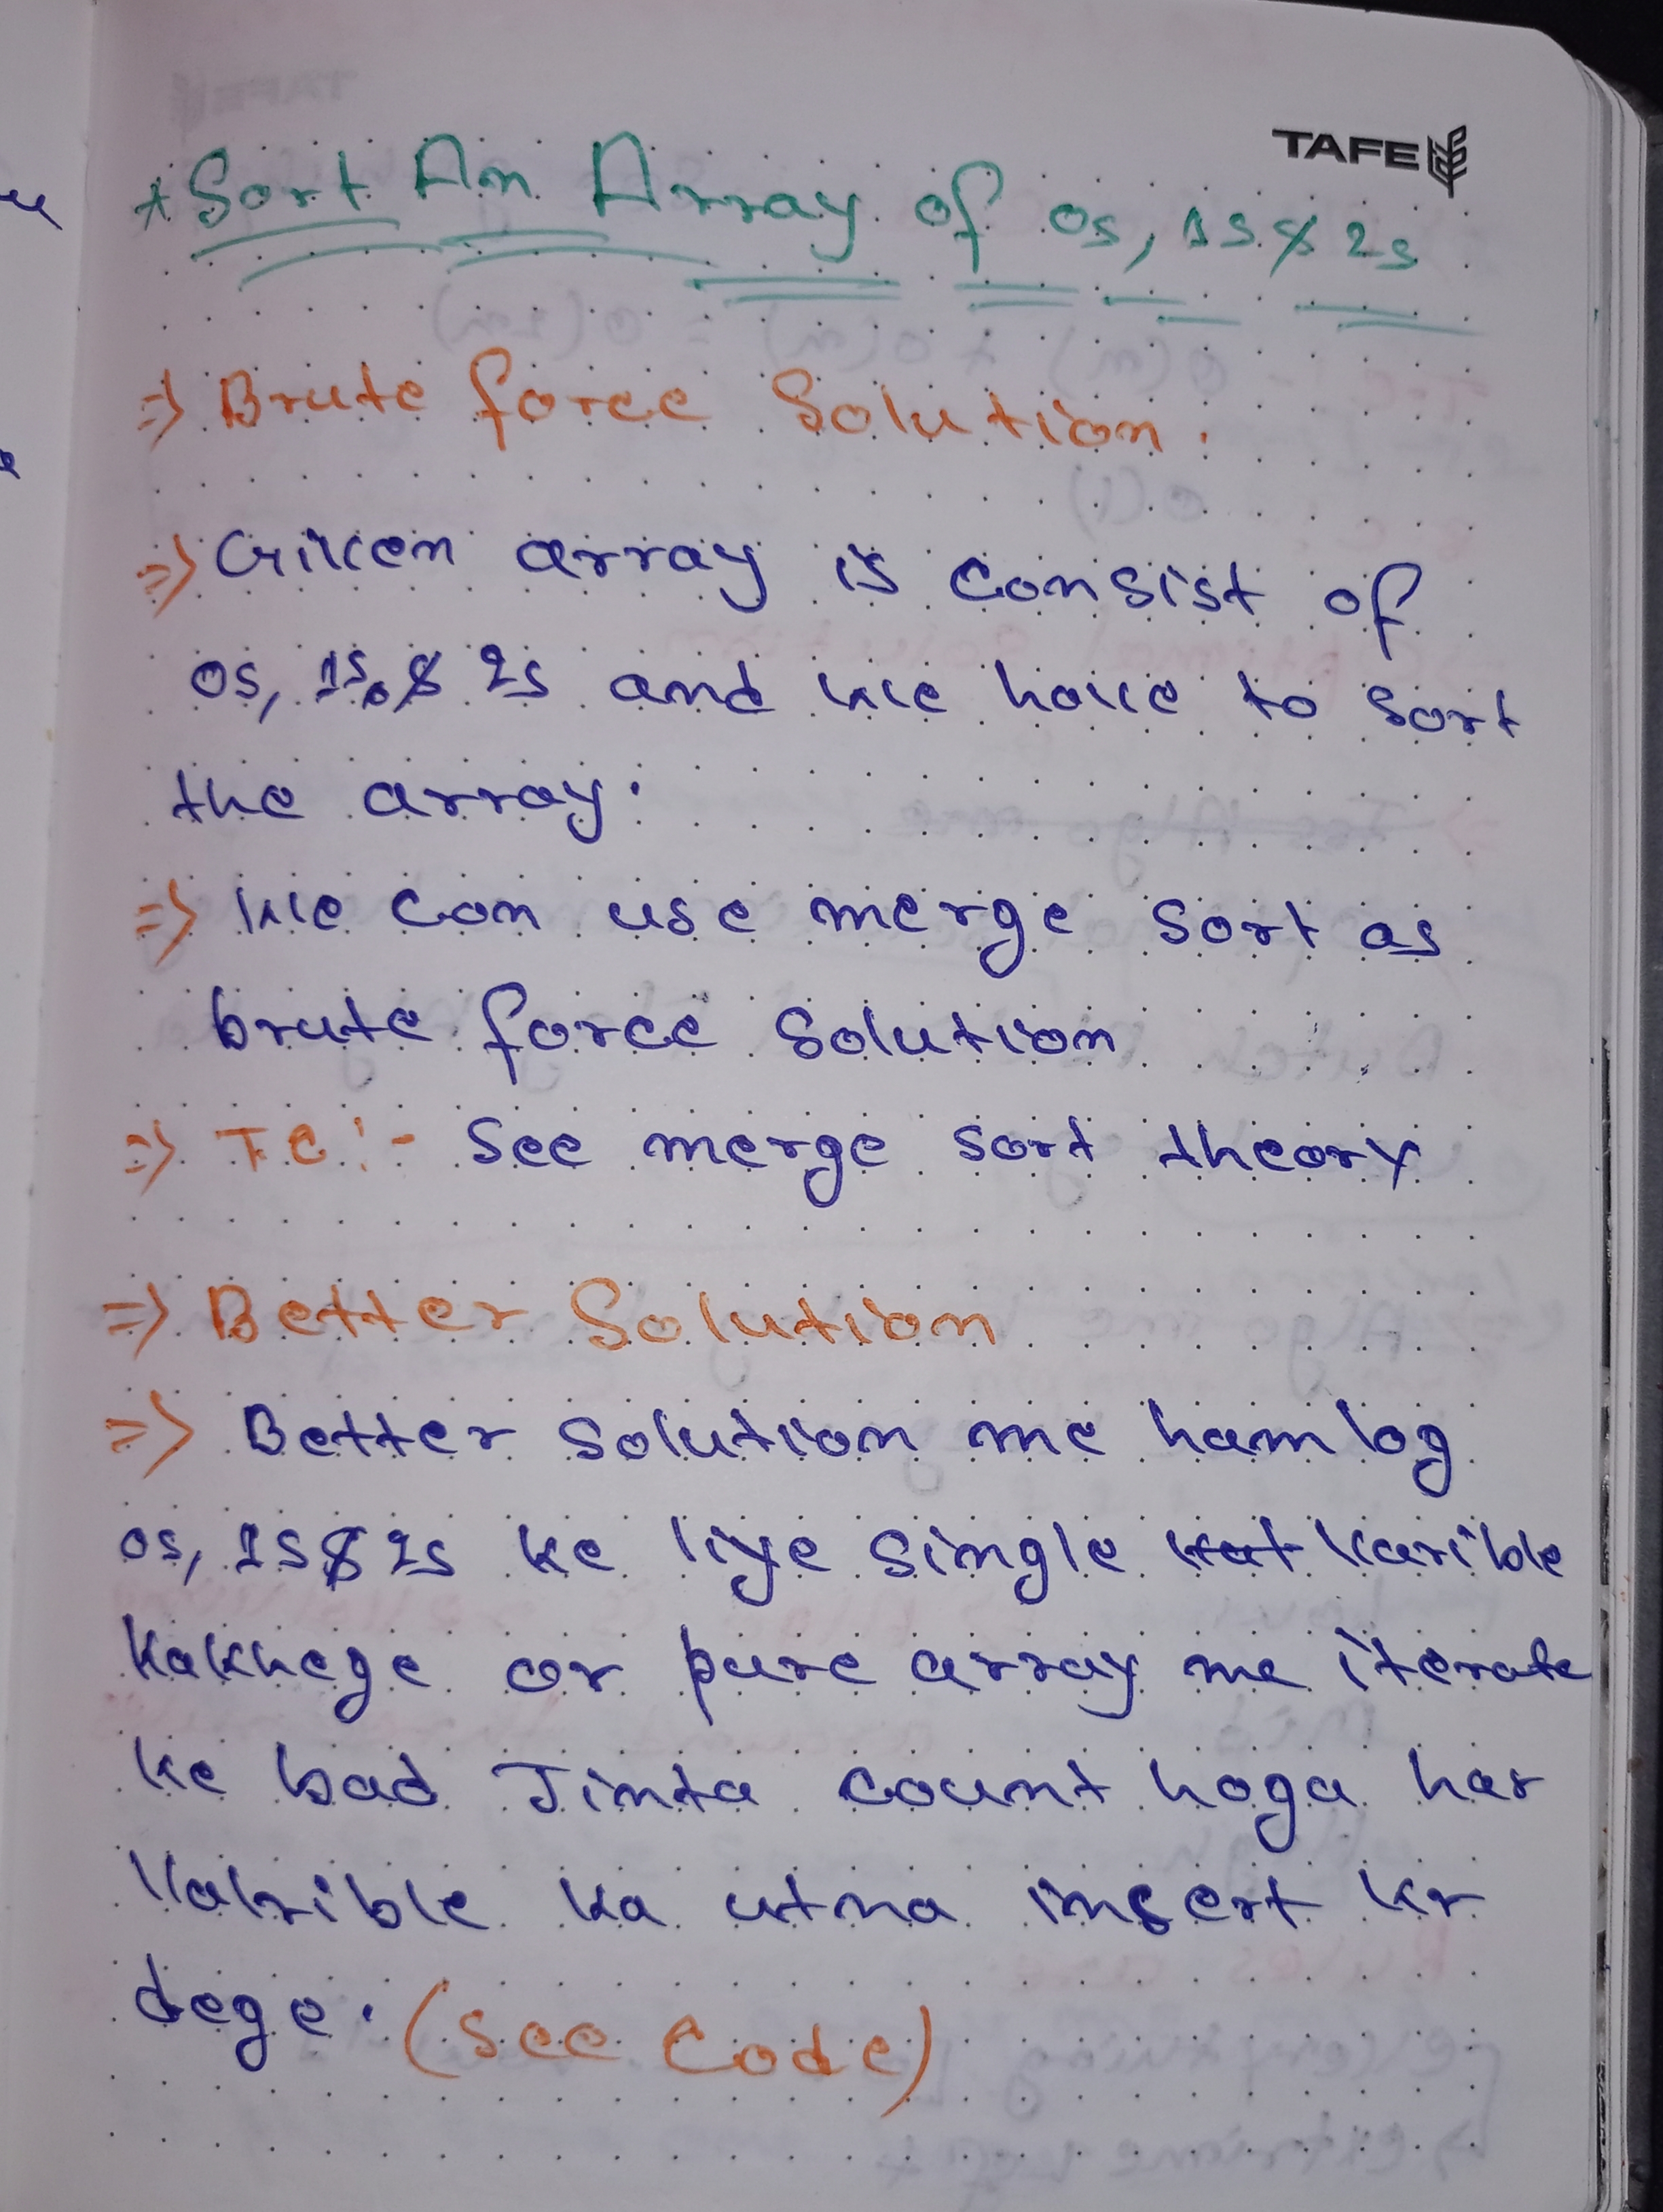 TAFE
* Sort An Array of 0s, 1s & 2s
=> Brute force Solution :
=> Given array is consist of
0s, 1s, & 2s and we have to sort
the array.
=> We can use merge sort as
brute force solution
=> T C :- See merge sort theory
=> Better Solution
=> Better solution me hamlog
0s, 1s & 2s ke liye single varible
Kakhege or pure array me iterate
ke bad Jinta count hoga har
varible ka utna insert kr
dege. (See Code)